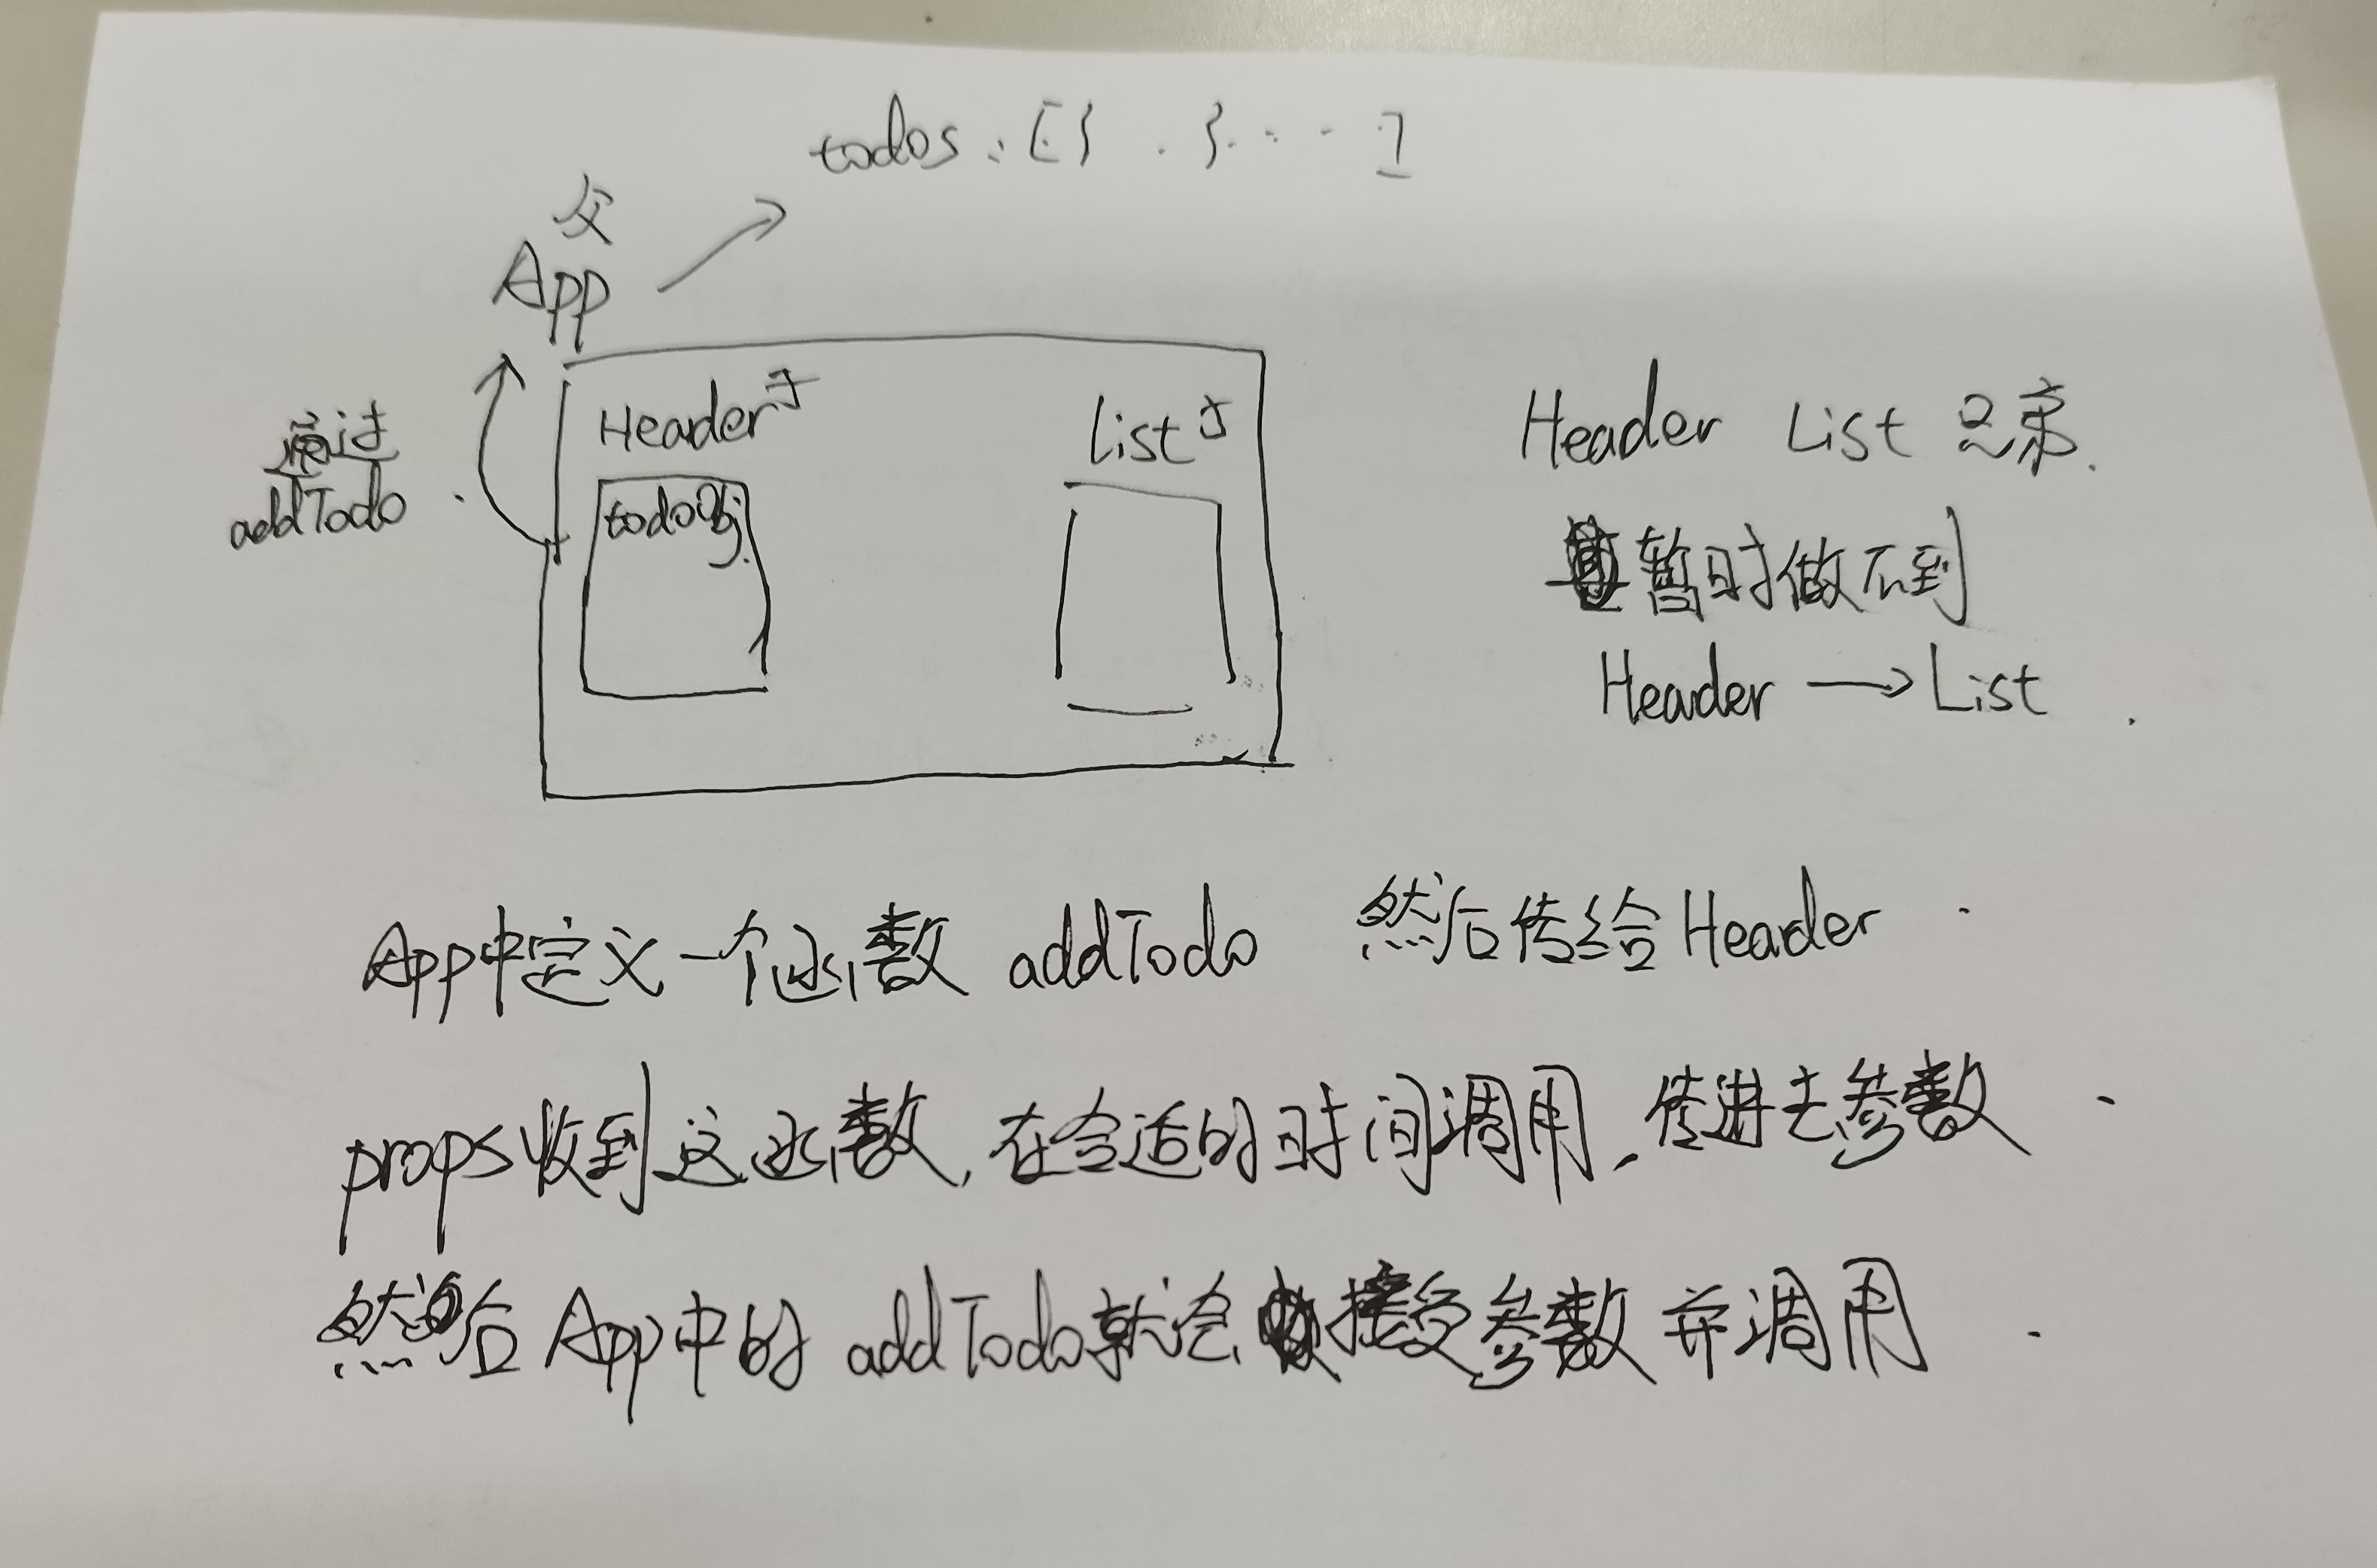 todos : [ { . } . . . . ]
父
App
Header 子
List 子
通过
addTodo .
todoObj.
Header List 兄弟.
暂时做不到
Header → List .
App中定义一个函数 addTodo 然后传给Header .
props收到这函数, 在合适的时间调用, 传进去参数 .
然后 App中的 addTodo就会接受参数并调用 .